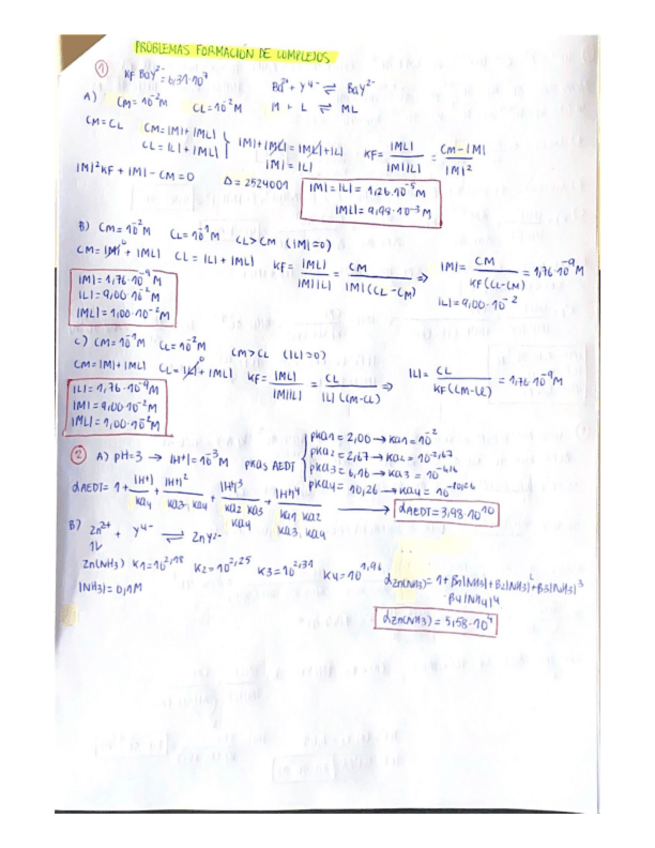 PROBLEMAS FORMACIÓN DE COMPLEJOS
① KF BaY²⁻ = 6,31·10⁷
Ba²⁺ + Y⁴⁻ ⇌ BaY²⁻
A) CM = 10⁻²M CL = 10⁻²M M + L ⇌ ML
CM = CL CM = |M| + |ML|
CL = |L| + |ML|
|M| + |ML| = |ML| + |L|
|M| = |L|
KF = |ML| / |M||L| = CM - |M| / |M|²
|M|²KF + |M| - CM = 0 Δ = 2524001
|M| = |L| = 1,26·10⁻⁵M
|ML| = 9,98·10⁻³M
B) CM = 10⁻²M CL = 10⁻¹M CL > CM (|M| = 0)
CM = |M|⁰ + |ML| CL = |L| + |ML| KF = |ML| / |M||L| = CM / |M|(CL - CM) ⇒ |M| = CM / KF(CL - CM) = 1,76·10⁻⁹M
|L| = 9,00·10⁻²
|M| = 1,76·10⁻⁹M
|L| = 9,00·10⁻²M
|ML| = 1,00·10⁻²M
C) CM = 10⁻¹M CL = 10⁻²M CM > CL (|L| = 0)
CM = |M| + |ML| CL = |L|⁰ + |ML| KF = |ML| / |M||L| = CL / |L|(CM - CL) ⇒ |L| = CL / KF(CM - CL) = 1,76·10⁻⁹M
|L| = 1,76·10⁻⁹M
|M| = 9,00·10⁻²M
|ML| = 1,00·10⁻²M
② A) pH = 3 → |H⁺| = 10⁻³M pKas AEDT
pKa1 = 2,00 → Ka1 = 10⁻²
pKa2 = 2,67 → Ka2 = 10⁻²,⁶⁷
pKa3 = 6,16 → Ka3 = 10⁻⁶,¹⁶
pKa4 = 10,26 → Ka4 = 10⁻¹⁰,²⁶
αAEDT = 1 + |H⁺| / Ka4 + |H⁺|² / Ka3·Ka4 + |H⁺|³ / Ka2 Ka3 Ka4 + |H⁺|⁴ / Ka1 Ka2 Ka3 Ka4 → αAEDT = 3,98·10¹⁰
B) Zn²⁺ + Y⁴⁻ ⇌ ZnY²⁻
Zn(NH3) K1 = 10²,¹⁸ K2 = 10²,²⁵ K3 = 10²,³¹ K4 = 10¹,⁹⁶
αZn(NH3) = 1 + β1|NH3| + β2|NH3|² + β3|NH3|³
β4|NH4|⁴
|NH3| = 0,1M
αZn(NH3) = 5,58·10⁴